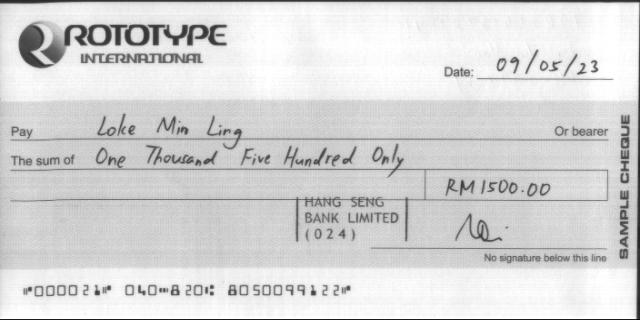 ROTOTYPE
INTERNATIONAL
Date: 09/05/23
Pay Loke Min Ling Or bearer
The sum of One Thousand Five Hundred Only
RM1500.00
HANG SENG
BANK LIMITED
(024)
No signature below this line
SAMPLE CHEQUE
⑈000021⑈ 040⑉820⑆ 8050099122⑈